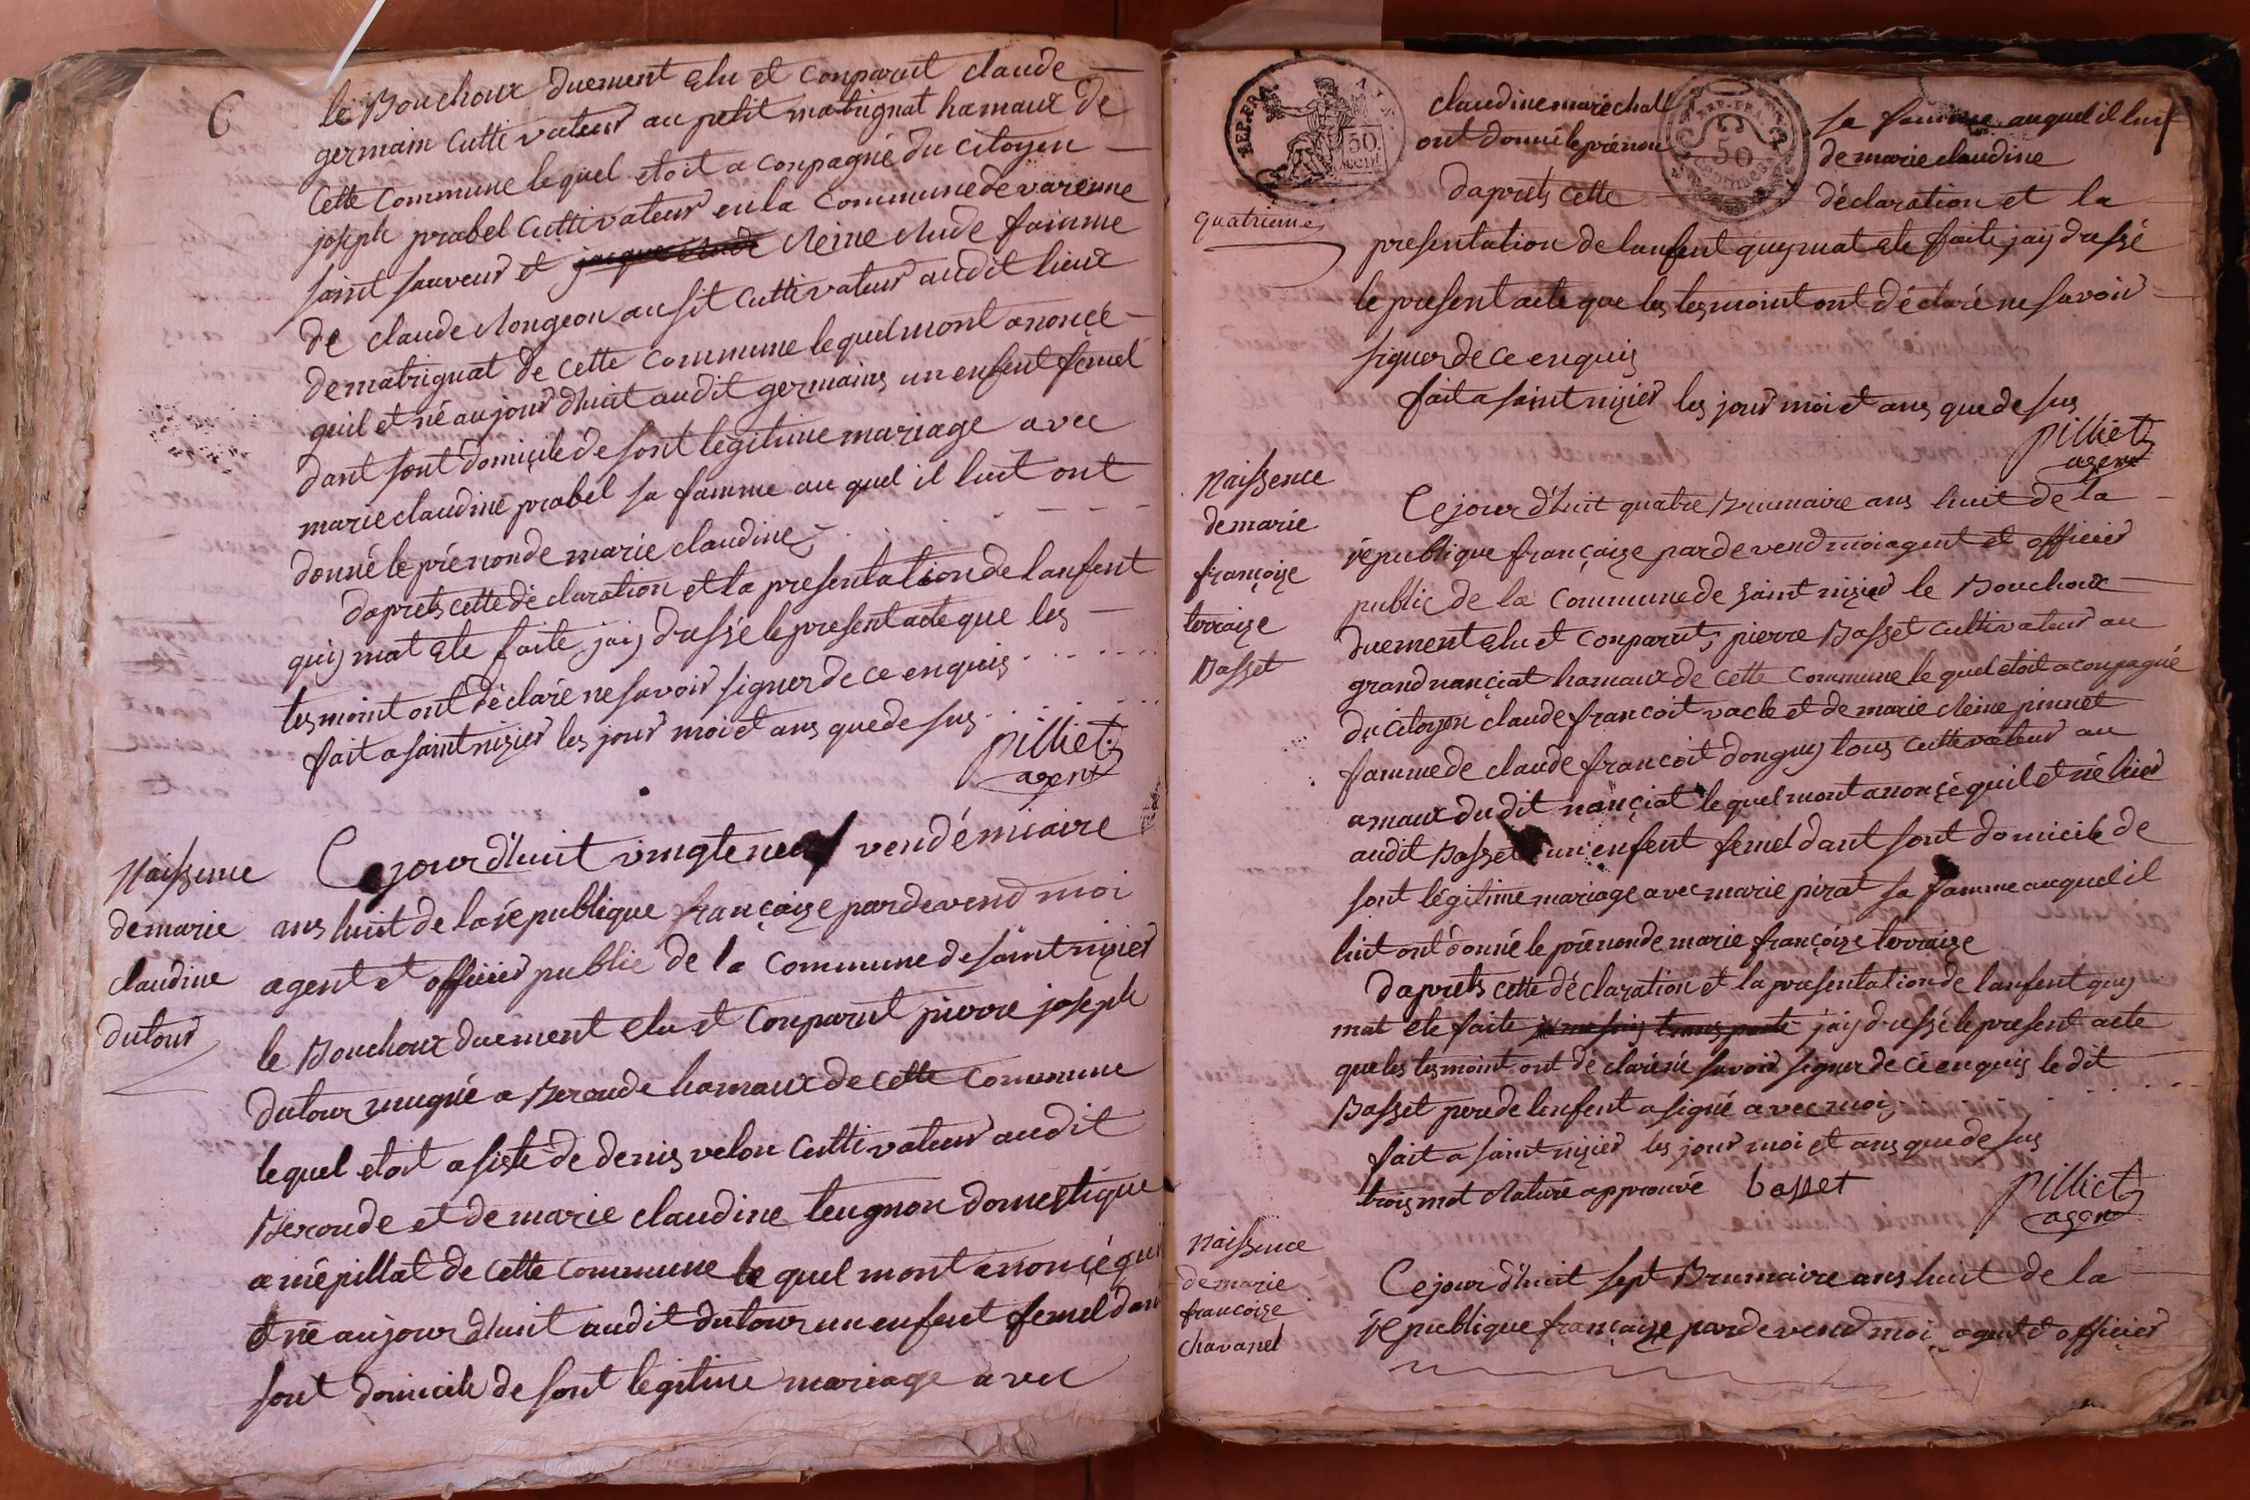 6
le Bouchoux duement elu et conparut claude
germain cultivateur au petit matrignat hamaux de
cette commune lequel etoit a conpagné du citoyen
joseph prabel cultivateur en la commune de varenne
saint sauveur et Reine Rude famme
de claude Rongeon ausit cultivateur audit lieux
de matrignat de cette commune lequel mont anoncé
quil et né aujour dhuit audit germains un enfent femel
dant sont domicile de sont legitime mariage avec
marie claudine prabel sa famme au quel il luit ont
donné le prénon de marie claudine
daprets cette déclaration et la presentation de lanfent
quij mat ete faite jaij dressé le present acte que les
tesmoint ont déclaré ne savoir signer de ce enquis
fait a saint nizier les jour moi et ans que de sus
pilliet
agent
Naissence
de marie
claudine
dutour
Ce jour d'huit vingt neuf vendémiaire
ans huit de la république françaize pardevend moi
agent et officier public de la commune de saint nizier
le Bouchoux duement elu et conparut pierre joseph
dutour mugnié a Beroude hamaux de cette commune
lequel etoit asisté de denis velon cultivateur audit
Beroude et de marie claudine teugnon domestique
a mépillat de cette commune le quel mont anoncé qui
et né aujour dhuit audit dutour un enfent femel dan
sont domicile de sont legitime mariage avec
claudine maréchal sa famme auquel il luit
ont donné le prénon de marie claudine
REP. FRA.
50.
cent
REP. FRA.
50
quatrieme
daprets cette déclaration et la
presentation de lanfent quij mat ete faite jaij dressé
le present acte que les tesmoint ont déclaré ne savoir
signer de ce enquis
fait a saint nizier les jour moi et ans que de sus
pilliet
agent
Naissence
de marie
françoize
terraize
Basset
Ce jour d'huit quatre Brumaire ans huit de la
république françaize pardevend moi agent et officier
public de la commune de saint nizier le Bouchoux
duement elu et conparut pierre Basset cultivateur au
grand nançiat hamaux de cette commune le quel etoit a conpagné
du citoyen claude francoit vacle et de marie Reine pinnet
famme de claude francoit donguy tous cultivateur au
amaux dudit nançiat le quel mont anoncé quil et né hier
audit Basset un enfent femel dant sont domicile de
sont légitime mariage avec marie pirat sa famme auquel il
luit ont donné le prénon de marie françoize terraize
daprets cette déclaration et la presentation de lanfent quij
mat ete faite je me suis transporté jaij dressé le present acte
que les tesmoint ont déclaré ne savoir signer de ce enquis le dit
Basset pere de lenfent a signé avec moi
fait a saint nizier les jour moi et ans que de sus
trois mot Raturé approuvé basset
pilliet
agent
Naissence
de marie
francoize
chavanel
Ce jour d'huit sept Brumaire ans huit de la
république françaize pardevend moi agent et officier